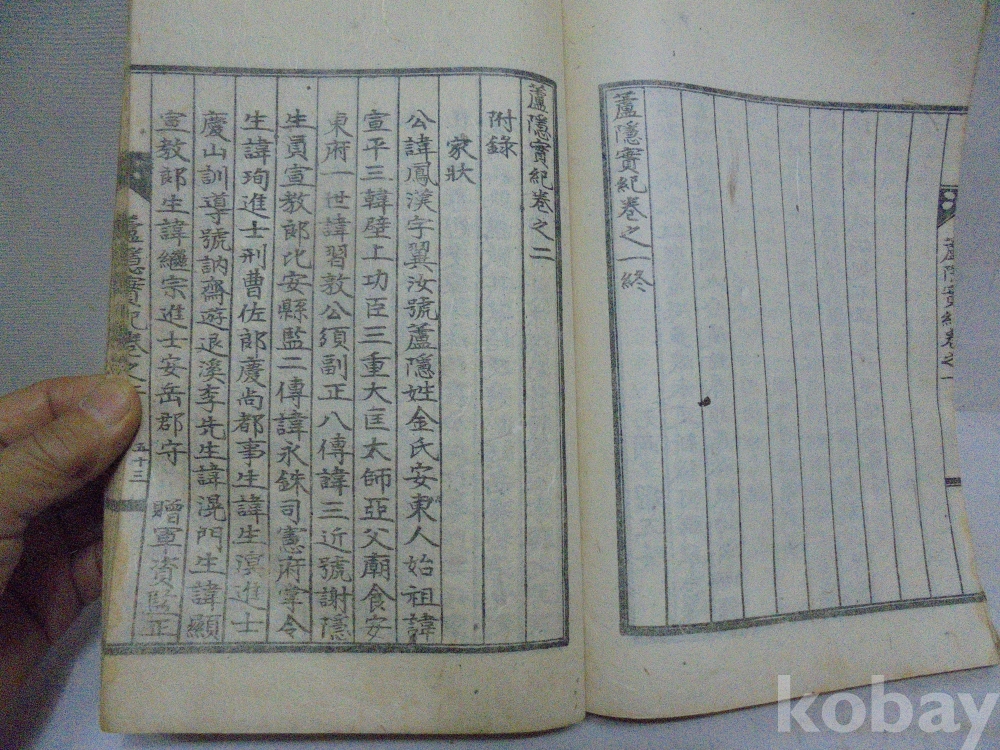 蘆隱實紀卷之一終
蘆隱實紀卷之一
蘆隱實紀卷之二
附錄
家狀
公諱鳳漢字翼汝號蘆隱姓金氏安東人始祖諱
宣平三韓壁上功臣三重大匡太師亞父廟食安
東府一世諱習敦公須副正八傳諱三近號謝隱
生員宣敎郎比安縣監二傳諱永銖司憲府掌令
生諱珣進士刑曹佐郎慶尙都事生諱生溟進士
慶山訓導號訥齋遊退溪李先生諱滉門生諱顯
宣敎郎生諱繼宗進士安岳郡守 贈軍資監正
蘆隱實紀卷之二
五十三
kobay